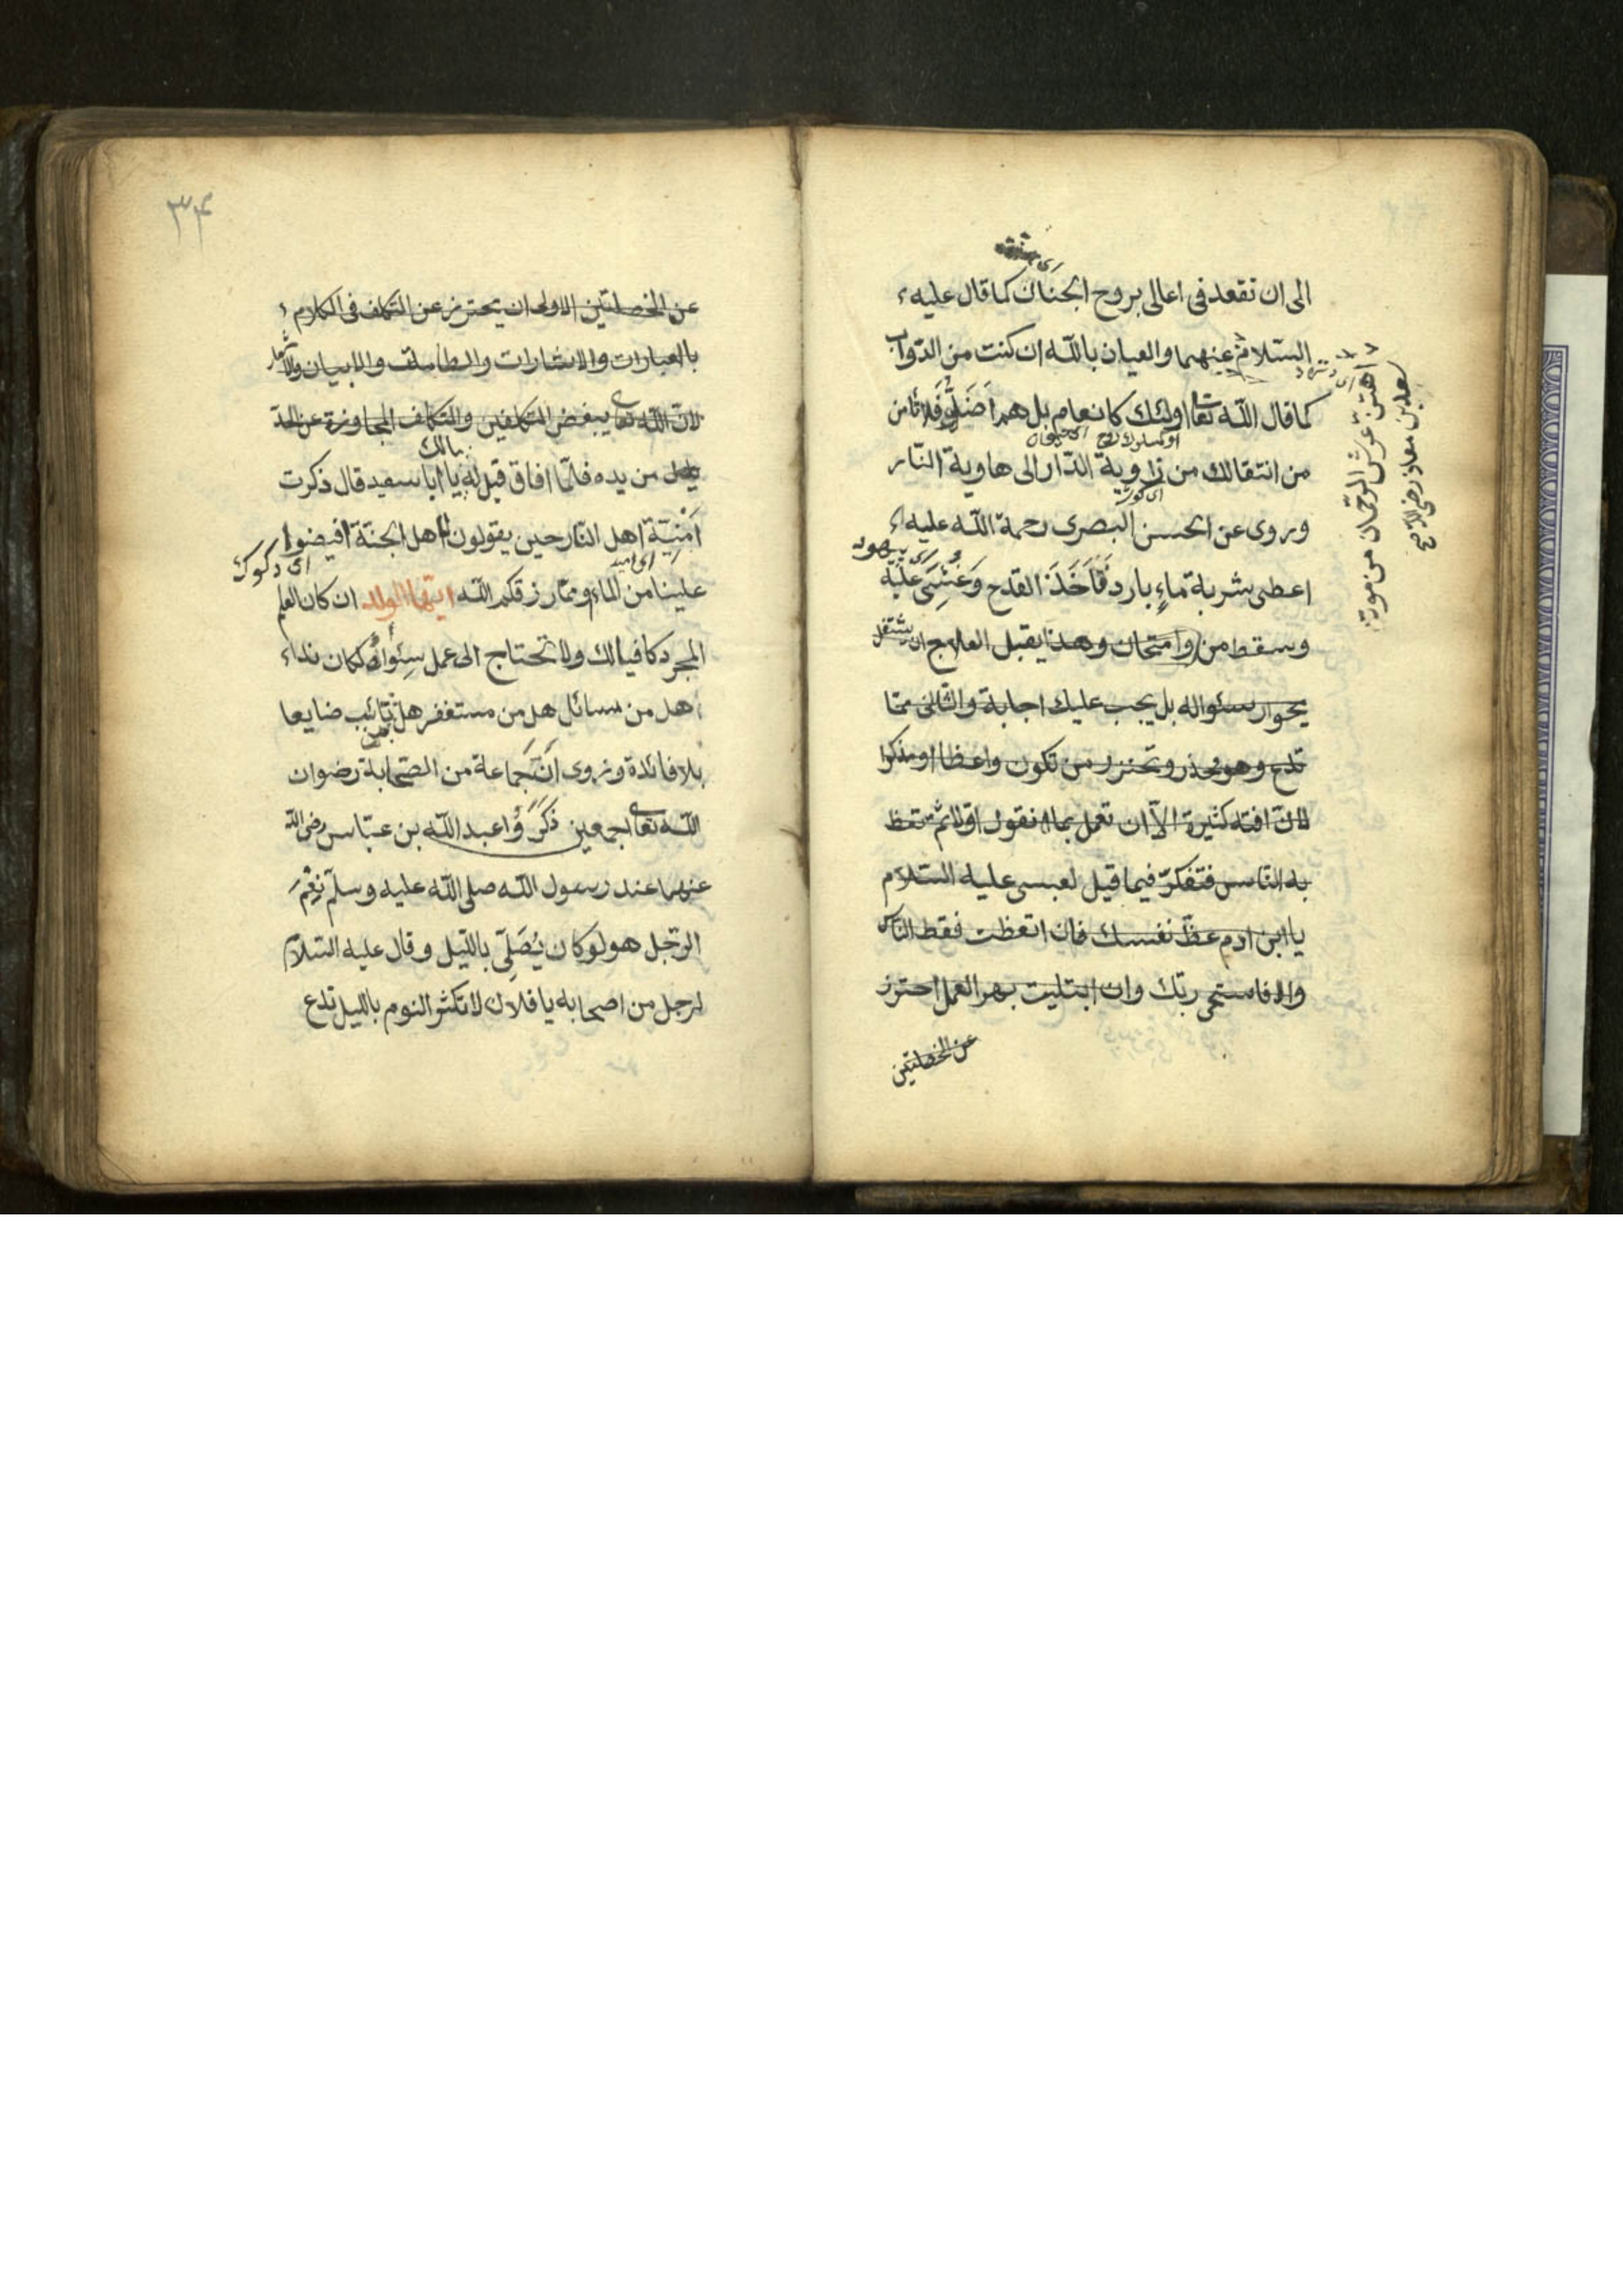 الى ان تقعد فى اعالى بروح الجنان كما قال عليه
السلام عنهما والعيان بالله ان كنت من الدواب
اهتز عرش الرحمان من موت
سعد بن معاذ رضى
كما قال الله تعا اولئك كانعام بل هم اَضَلُّ فلا تامن
من انتقالك من زاوية الدار الى هاوية النار
وروى عن الحسن البصرى رحمة الله عليه
اعطى بشربة ماءٍ بارد فَاَخَذَ القدح وَغُشِىَ عليه
وسقط من وامتحان وهذا يقبل العلاج ان يشتغل
بجوار سئواله بل يجب عليك اجابة والثانى مما
تدع وهو تحذر وتحترز من تكون واعظا او مذكرا
لان افته كثيرة الّا ان تعمل بما تقول اولا ثم تعظ
به الناس فتفكر فيما قيل لعيسى عليه السلام
يا ابن ادم عظ نفسك فان اتعظت فقط الناس
والا فاستحى ربك وان ابتليت بهر العمل احترز
عن الخصلتين
٣۴
عن الخصلتين الاولى ان يحترز عن التكلف فى الكلام
بالعبارات والاشارات والطامات والابيات والاشعار
لان الله تعالى يبغض المتكلفين والتكلف المجاوزة عن الحد
من يده فلما افاق قيل له يا ابا سعيد مالك قال ذكرت
اُمْنِيَّة اهل النار حين يقولون لاهل الجنة افيضوا
علينا من الماء ومما رزقكم الله ايها الولد ان كان العلم
المجرد كافيا لك ولا تحتاج الى عمل سئواه لكان نداء
هل من سائل هل من مستغفر هل من تائب ضايعا
بلا فائدة وروى اَنَّ جماعة من الصحابة رضوان
الله تعالى اجمعين ذَكَرَوُا عبد الله بن عباس رضى الله
عنهما عند رسول الله صلى الله عليه وسلم نِعْمَ
الرجل هو لو كان يُصَلِّى بالليل وقال عليه السلام
لرجل من اصحابه يا فلان لا تكثر النوم بالليل تدع